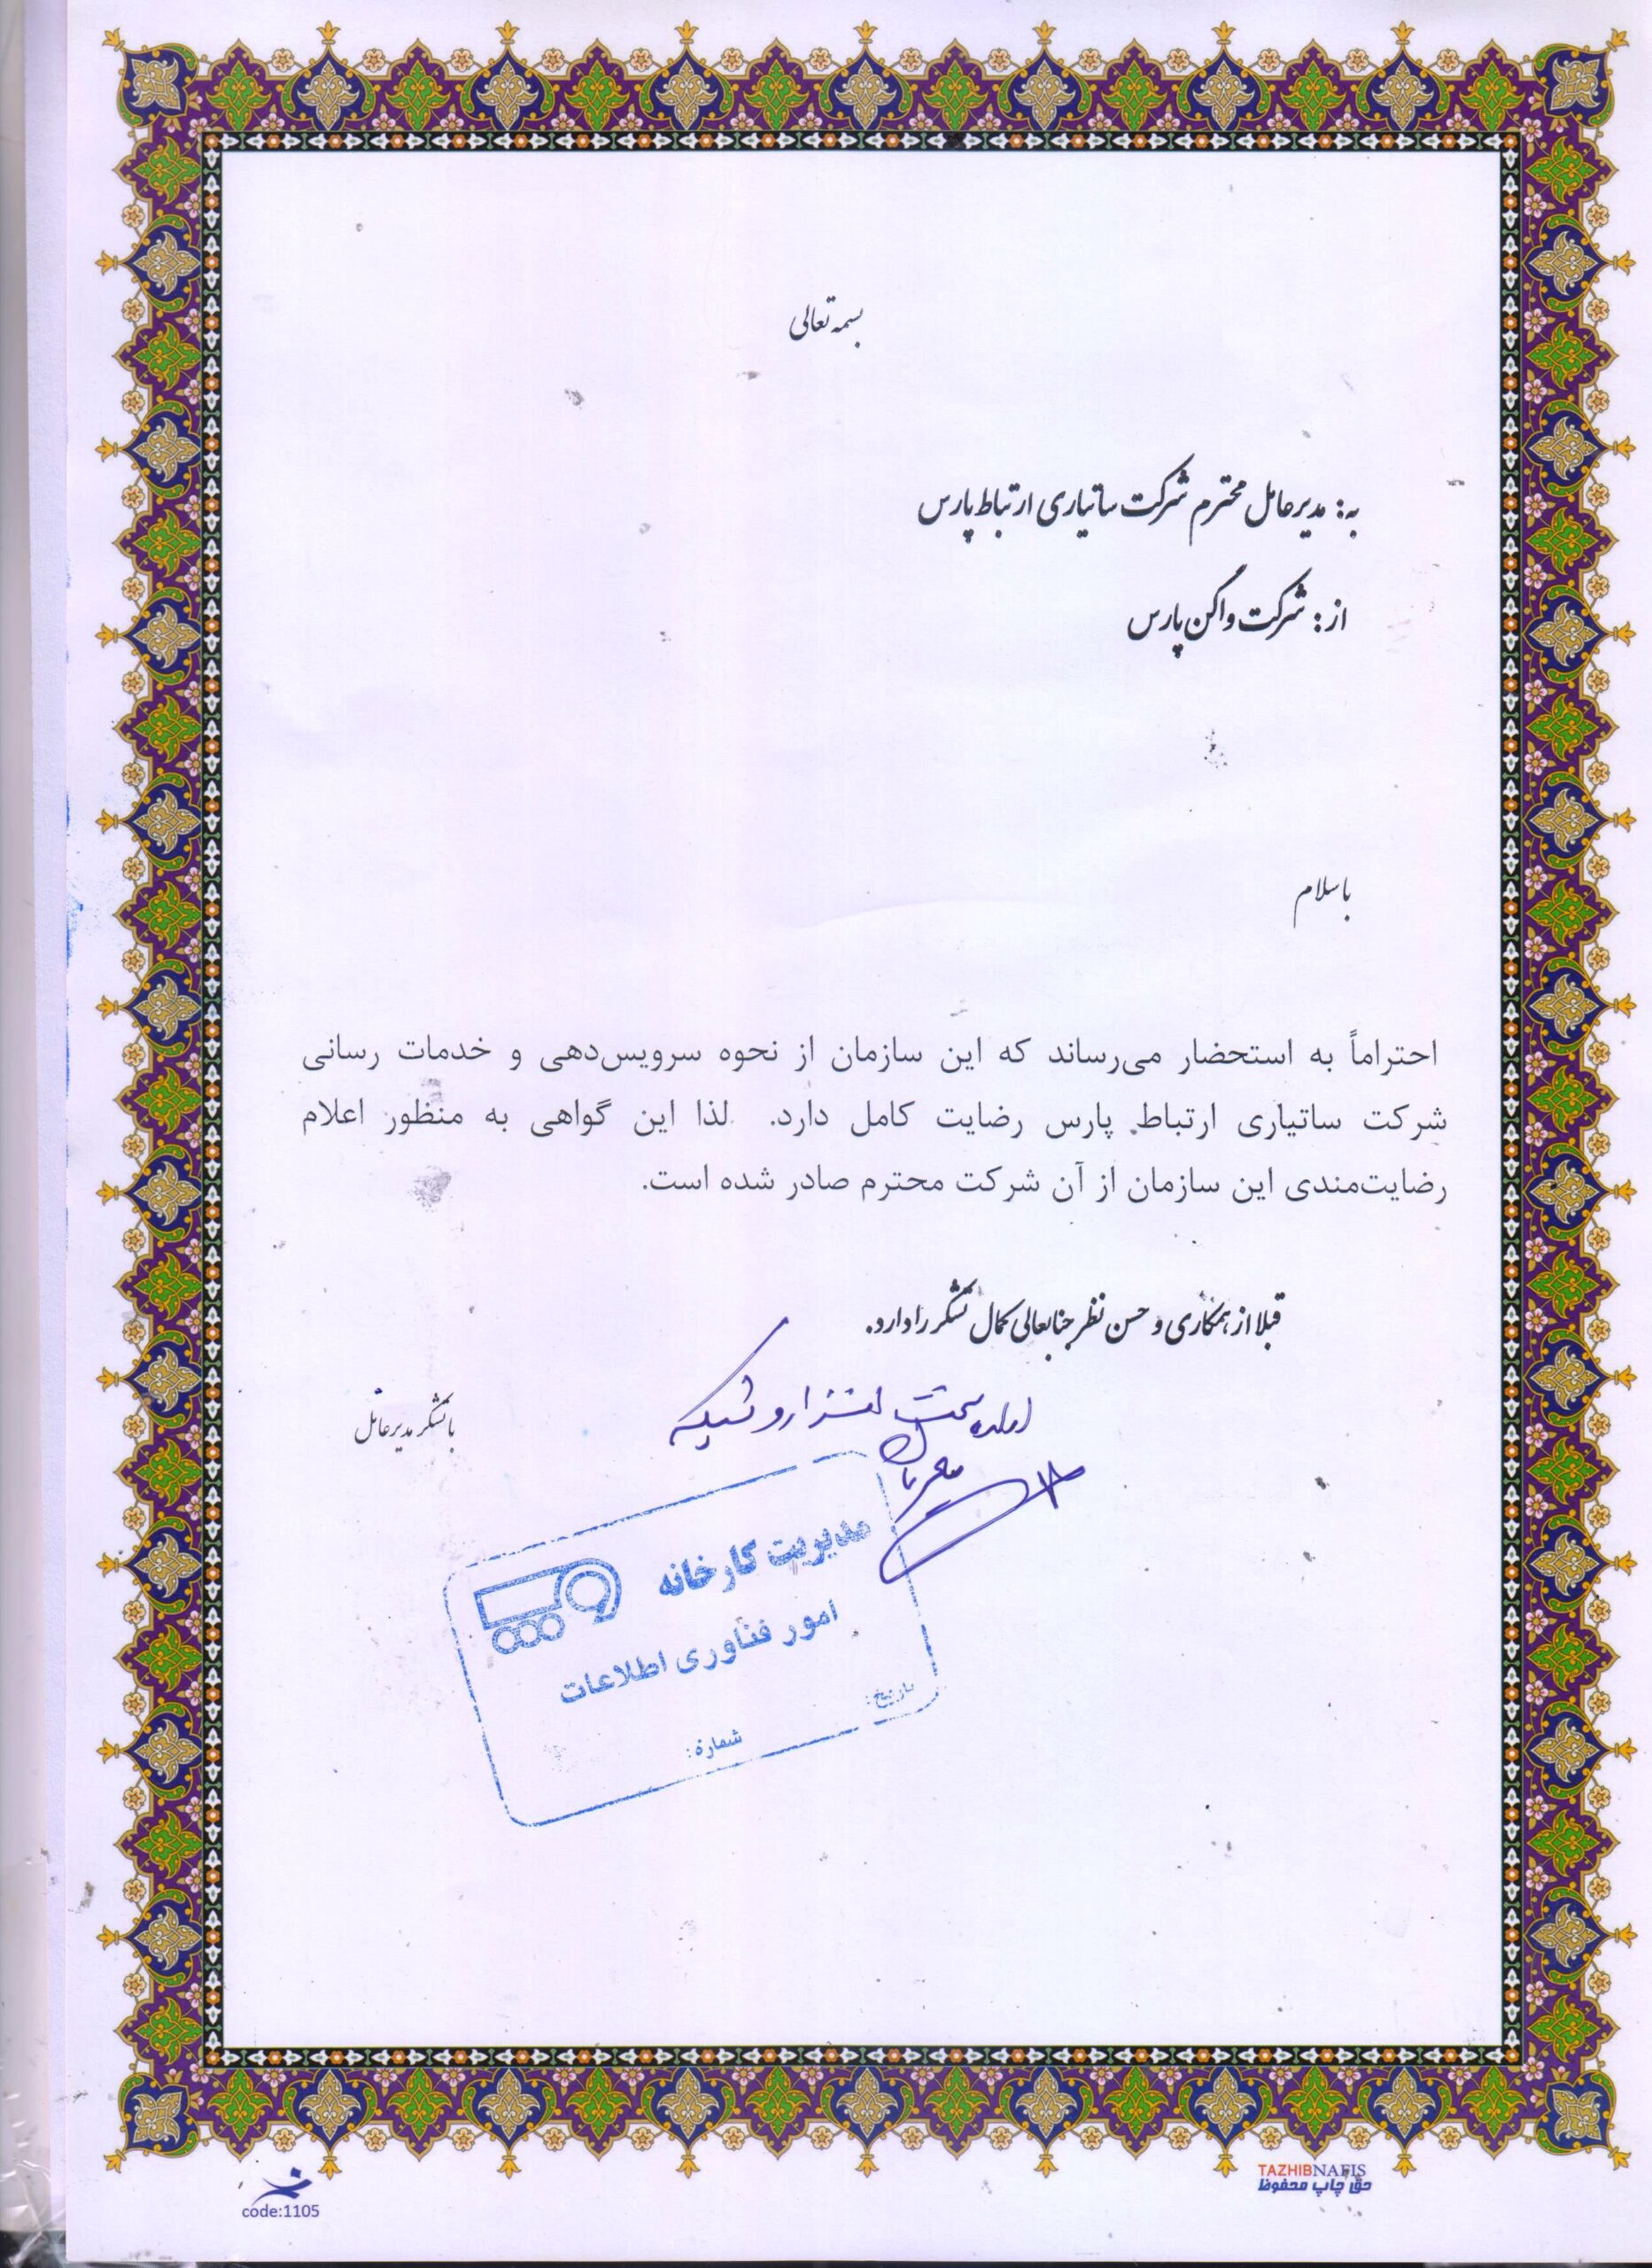 بسمه تعالی
به: مدیرعامل محترم شرکت ساتیاری ارتباط پارس
از: شرکت واگن پارس
باسلام
احتراماً به استحضار می‌رساند که این سازمان از نحوه سرویس‌دهی و خدمات رسانی
شرکت ساتیاری ارتباط پارس رضایت کامل دارد. لذا این گواهی به منظور اعلام
رضایت‌مندی این سازمان از آن شرکت محترم صادر شده است.
قبلا از همکاری و حسن نظر جنابعالی کمال تشکر را دارد.
با تشکر مدیرعامل
اداره سخت افزار و شبکه
مدیریت کارخانه
امور فناوری اطلاعات
تاریخ:
شماره:
code:1105
TAZHIBNAFIS
حق چاپ محفوظ